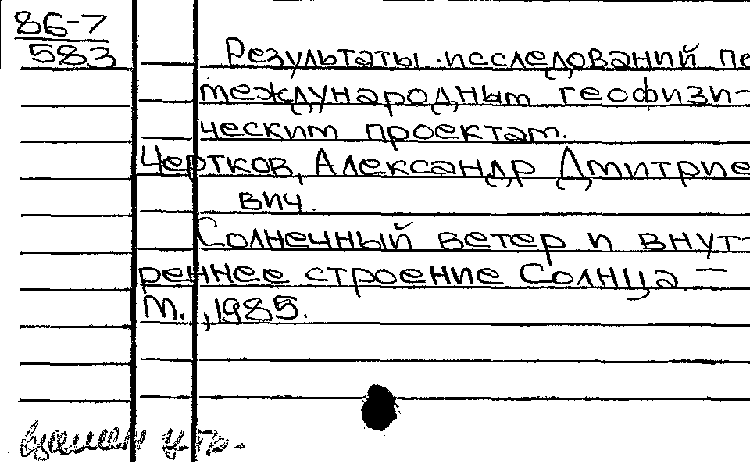 86-7
583
Результаты исследований по
международным геофизи-
ческим проектам.
Чертков, Александр Дмитрие
вич.
Солнечный ветер и внут-
реннее строение Солнца —
М., 1985.